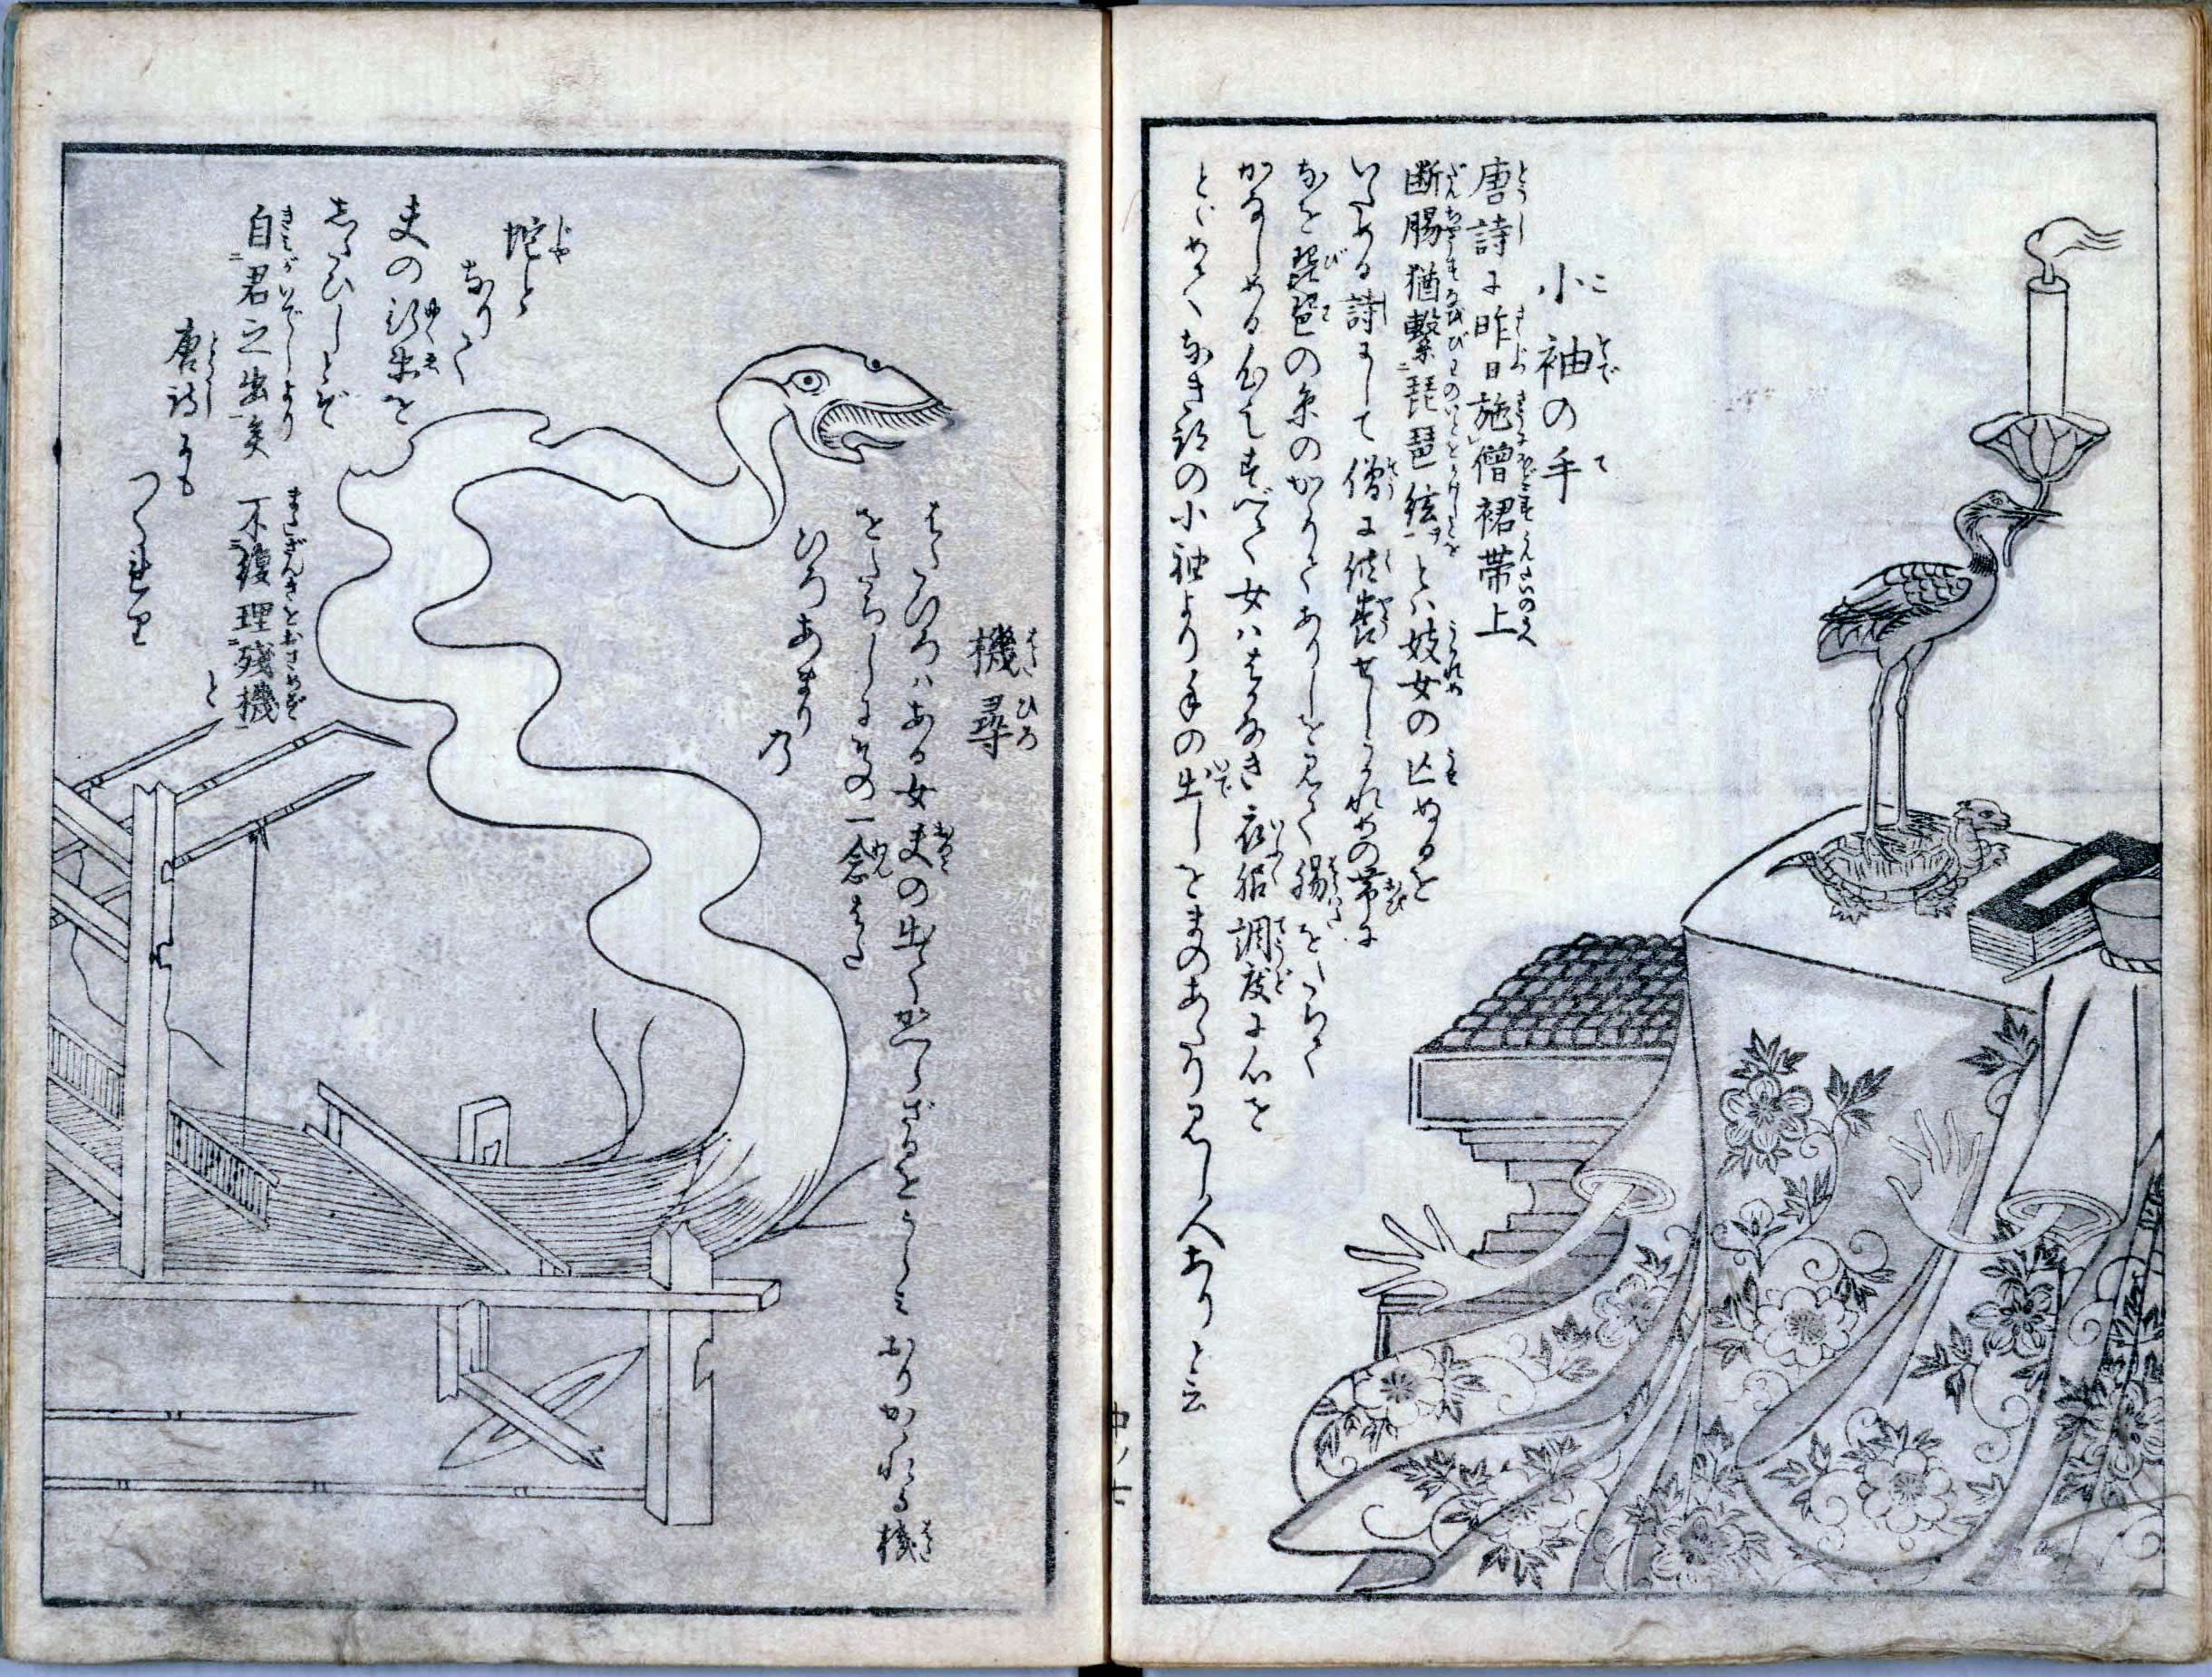 小袖の手
こそでのて
唐詩に昨日施僧裙帯上
断腸猶繋琵琶絃とは妓女の亡ぬるを
いためる詩にして僧に供養せしうかれめの帯に
なを琵琶の糸のかゝりてありしを見て腸をたちて
かなしめる心也すべて女ははかなき衣服調度に心を
とゞめてなき跡の小袖より手の出しをまのあたり見し人ありと云
中ノ七
機尋
はたひろ
はたひろはある女夫の出てかへらざるをうらみおりかけたる機
をたちしにその一念はた
ひろあまりの
蛇と
なりて
夫の行衛を
したひしとぞ
自君之出矣 不復理残機と
唐詩にも
つくれり